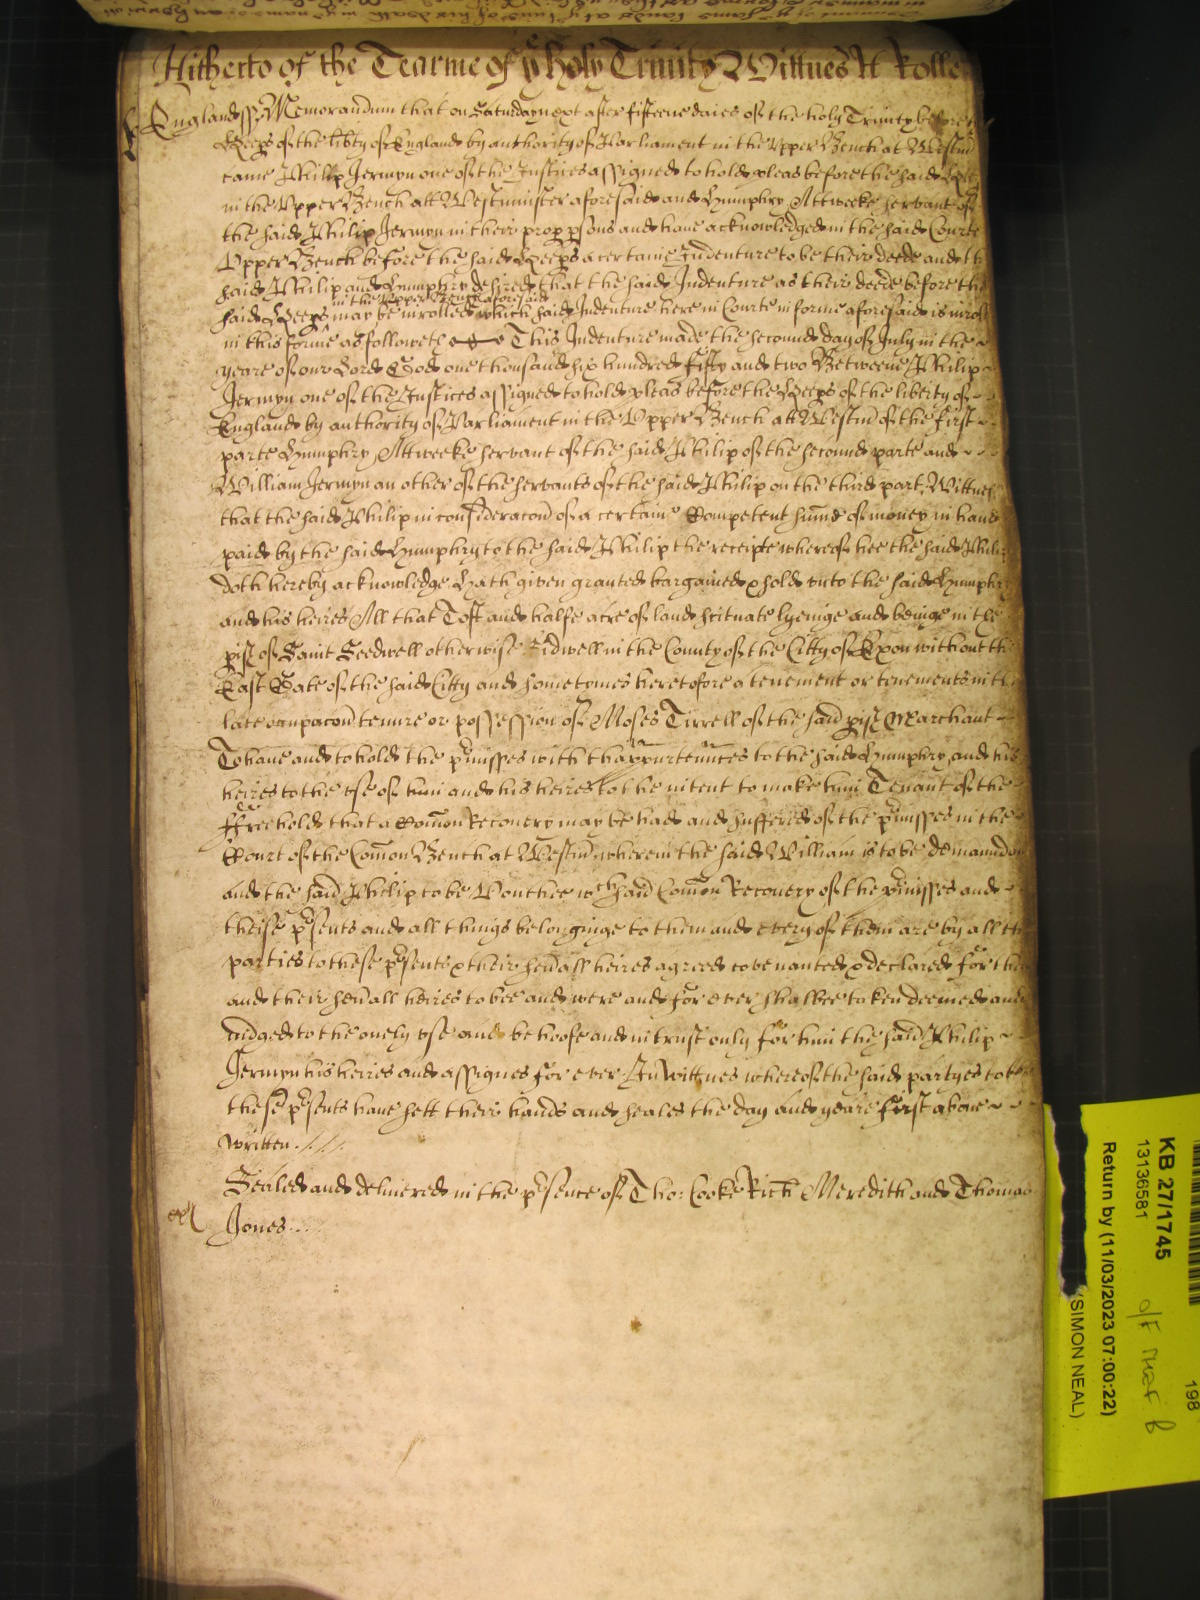 Hitherto of the Tearme of ye holy Trinity Wittnes H Rolle
England ss Memorandum that on Saturday next after fifteene daies of the holy Trinity before
Keeps of the libty of England by authority of Parliament in the Upper Bench at Westm
came Phillip Jermyn one of the Justices assigned to hold pleas before the said Keeps
in the Upper Bench att Westminster aforesaid and Humphry Attweeke servant of
the said Philip Jermyn in their prop psons and have acknowledged in the said Courte
Upper Bench before the said Keeps a certaine Indenture to be their deede and th
said Philip and Humphry desired that the said Indenture as their deede before the
in the Upper Bench aforesaid
said Keeps may be inrolled which said Indenture here in Courte in forme aforesaid is inroll
in this forme as followeth This Indenture made the second day of July in the
yeare of our Lord God one thousand six hundred fifty and two Betweene Philip
Jermyn one of the Justices assigned to hold pleas before the Keeps of the liberty of
England by authority of Parliament in the Upper Bench att Westm of the first
parte Humphry Attweeke servant of the said Philip of the second parte and
William Jermyn an other of the servants of the said Philip on the third part, Wittnes
that the said Philip in consideracon of a certaine Competent sume of money in hand
paid by the said Humphry to the said Philip the receipte whereof hee the said Philip
doth hereby acknowledge Hath given granted bargained & sold unto the said Humphry
and his heires All that Toft and halfe acre of land scituate lyeinge and beinge in the
pish of Saint Seedwell otherwise Sidwell in the County of the Citty of Exon without the
East Gate of the said Citty and sometomes heretofore a tenement or tenements in th
late occupacon tenure or possession of Moses Tirrell of the said pish Marchant
To have and to hold the pmisses with thappurtennces to the said Humphry and his
heires to the use of him and his heires to the intent to make him Tenant of the
ffreehold that a Comon Recovery may be had and suffered of the pmisses in the
Court of the Comon Bench at Westm wherein the said William is to be demaundant
and the said Philip to be Vouchee wch said Comon Recovery of the pmisses and
theise psents and all things belonginge to them and every of them are by all the
parties to these psents & their sevall heires agreed covenanted & declared for them
and their sevall heires to bee and were and for ever shalbee taken deemed and
iudged to the onely use and behoofe and in trust only for him the said Philip
Jermyn his heires and assignes for ever In Wittnes whereof the said partyes to
these psents have sett their hands and seales the day and yeare first above
written
Sealed and delivered in the psence of Tho: Cooke Rich Meredith and Thomas
exr Jones
KB 27/1745
13136581
Return by (11/03/2023 07:00:22)
(SIMON NEAL)
198